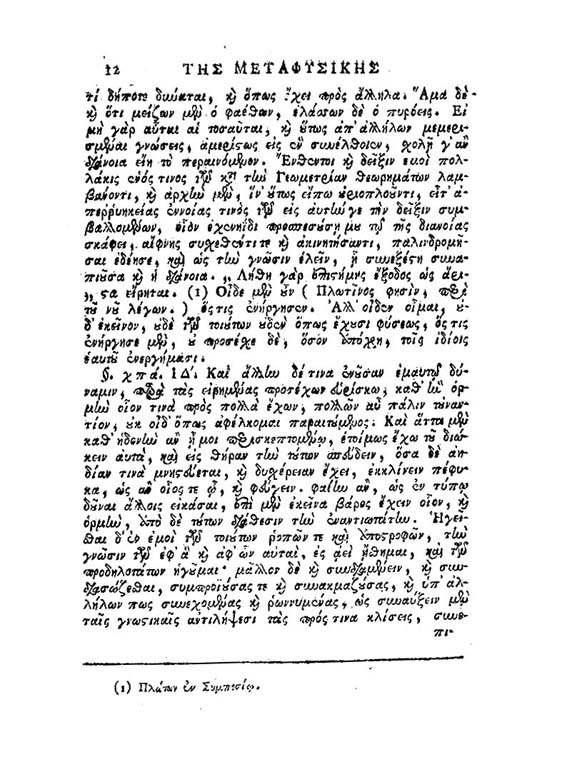 12 ΤΗΣ ΜΕΤΑΦΥΣΙΚΗΣ
τί δήποτε δύναται, ϗ ὅπως ἔχει πρὸς ἄλληλα. Ἅμα δὲ
ϗ ὅτι μείζων μὲν ὁ φαέθων, ἐλάσσων δὲ ὁ πυρόεις. Εἰ
μὴ γὰρ αὗται αἱ τοσαῦται, ϗ οὕτως ἀπ' ἀλλήλων μεμερι-
σμέναι γνώσεις, ἀμερίσως εἰς ἓν συνέλθοιεν, χολῇ γ' ἂν
διάνοια εἴη τὸ περαινόμενον. Ἔνθεντοι ϗ δεῖξιν ἐμοὶ πολ-
λάκις ἑνός τινος τῶν κατὰ τὴν Γεωμετρίαν θεωρημάτων λαμ-
βάνοντι, ϗ ἀρχὴν μὲν, ἵν' οὕτως εἴπω οὐριοπλοῦντι, εἶτ' ἀ-
περῤυηκείας ἐννοίας τινὸς τῶν εἰς αὐτήν γε τὴν δεῖξιν συμ-
βαλλομένων, οἷον ἐχενηΐδι προσπεσούσῃ μου τῷ τῆς διανοίας
σκάφει, αἴφνης συχεθέντι τε ϗ ἀκινητήσαντι, παλινδρομῆ-
σαι ἐδέησε, καὶ ὡς τὴν γνῶσιν ἑλεῖν, ᾗ συνεξέστη συνα-
πιοῦσα ϗ ἡ διάνοια. „ Λήθη γὰρ ἐπιστήμης ἔξοδος ὡς ἄρι-
„ στα εἴρηται. (1) Οἶδε μὲν οὖν (Πλωτῖνος φησὶν, περὶ
τοῦ νοῦ λέγων.) ὅςτις ἐνήργησεν. Ἀλλ' οἶδεν οἶμαι, οὐ
δ' ἐκεῖνον, οὐδὲ τῶν τοιούτων οὐδὲν ὅπως ἔχουσι φύσεως, ὅς τις
ἐνήργησε μὲν, οὐ προσέχε δὲ, ὅσον ὑπόχρη, τοῖς ἰδίοις
ἑαυτοῦ ἐνεργήμασι.
§. χπά. ΙΔ'. Καὶ ἄλλην δέ τινα ἐνοῦσαν ἐμαυτῷ δύ-
ναμιν, παρὰ τὰς εἰρημένας προτέχων εὑρίσκω, καθ' ἣν ὁρ-
μὴν οἷον τινὰ πρὸς πολλὰ ἔχων, πολλῶν αὖ πάλιν τοὐναν-
τίον, οὐκ οἶδ' ὅπως ἀφέλκομαι παραιτούμενος. Καὶ ἅττα μὲν
καθ' ἡδονὴν ἂν ᾖ μοι περισκεπτομένῳ, ἑτοίμως ἔχω τοῦ διώ-
κειν αὐτὰ, καὶ εἰς θήραν τὴν τούτων σπεύδειν, ὅσα δὲ ἀη-
δίαν τινὰ μνηστεύεται, ϗ δυχέρειαν ἔχει, ἐκκλίνειν πέφυ-
κα, ὡς ἂν οἷος τε ὦ, ϗ φεύγειν. φαίην ἂν, ὡς ἐν τύπῳ
δοῦναι ἄλλοις εἰκάσαι, ἐπὶ μὲν ἐκεῖνα βάρος ἔχειν οἷον, ϗ
ὁρμὴν, ἀπὸ δὲ τούτων διάθεσιν τὴν ἐναντιωτάτην. Ἡγεῖ-
σθαι δ' ἐν ἐμοὶ τῶν τοιούτων ῥοπῶν τε καὶ ἀποτροφῶν, τὴν
γνῶσιν τῶν ἐφ' ἃ ϗ ἀφ' ὧν αὗται, ἐς ἀεὶ ᾔσθημαι, καὶ τῶν
προδηλοτάτων ἥγημαι· μᾶλλον δὲ ϗ συνδιαμένειν, ϗ συν-
διασώζεσθαι, συμπροϊούσας τε ϗ συνακμαζούσας, ϗ ὑπ' ἀλ-
λήλων πως συνεχομένας ϗ ῥωννυμένας, ὡς συναύξειν μὲν
ταῖς γνωστικαῖς ἀντιλήψεσι τὰς πρός τινα κλίσεις, συνε-
πι-
(1) Πλάτων ἐν Συμποσίῳ.